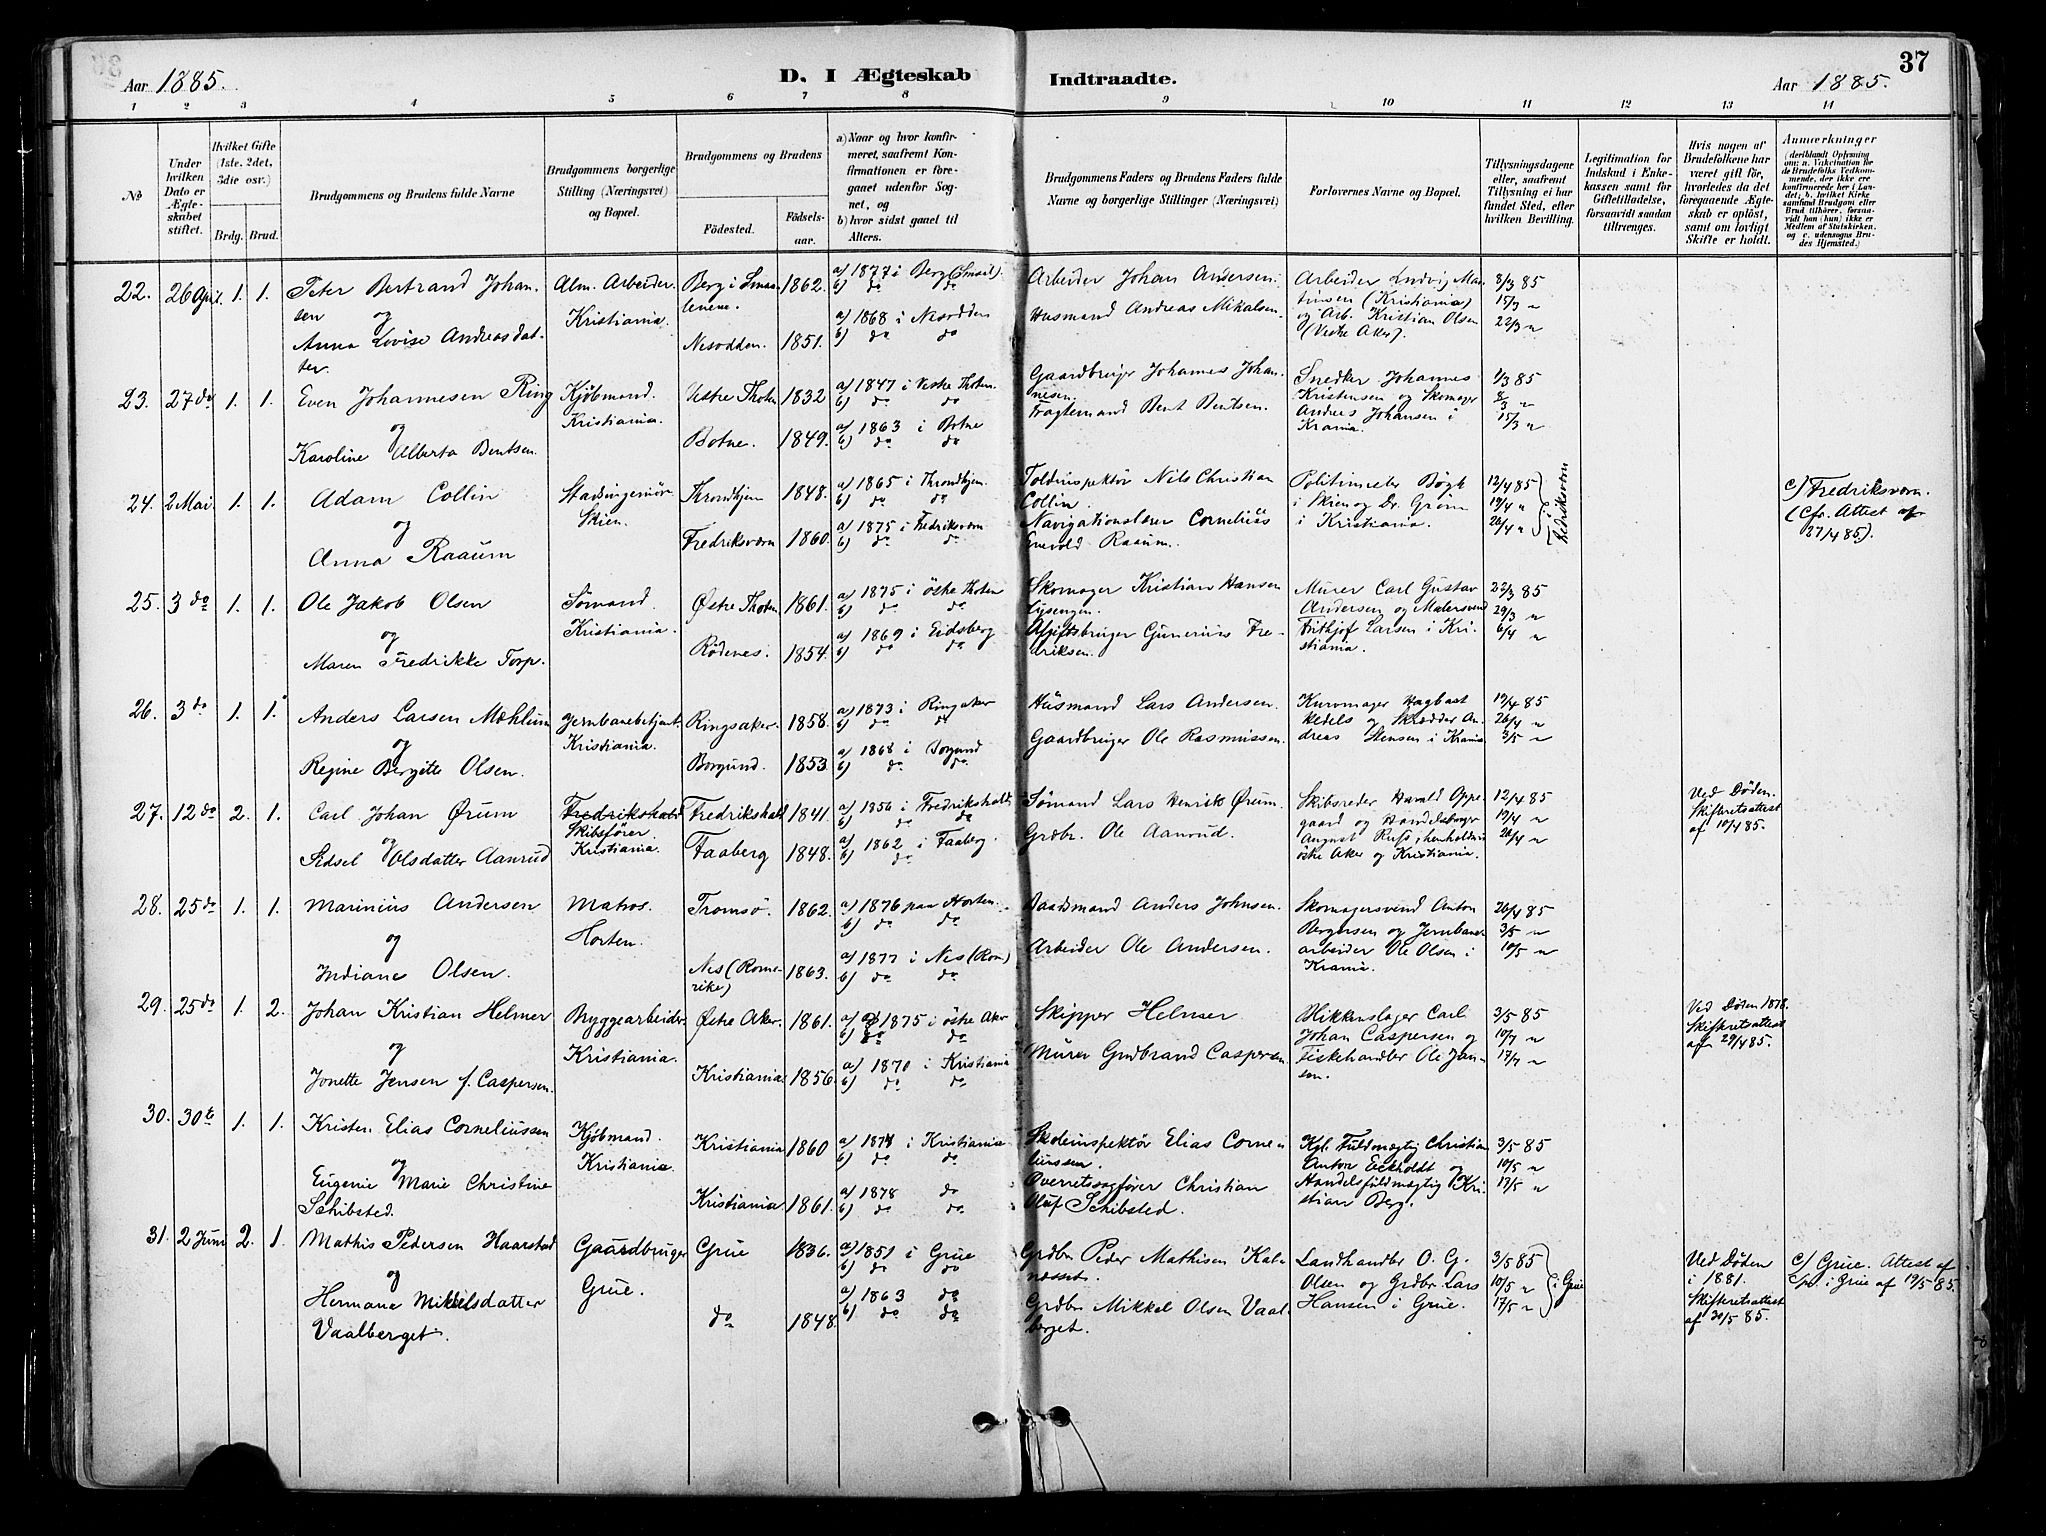 37
Aar 1885. D. I Ægteskab Indtraadte. Aar 1885.
1 2 3 4 5 6 7 8 9 10 11 12 13 14
№
Under hvilken Dato er Ægteskabet stiftet.
Hvilket Gifte (1ste, 2det, 3die osv.)
Brdg. Brud.
Brudgommens og Brudens fulde Navne
Brudgommens borgerlige Stilling (Næringsvei) og Bopæl.
Brudgommens og Brudens
Födested. Födselsaar.
a) Naar og hvor konfirmeret, saafremt Konfirmationen er foregaaet udenfor Sognet, og
b) hvor sidst gaaet til Alters.
Brudgommens Faders og Brudens Faders fulde Navne og borgerlige Stillinger (Næringsvei)
Forlovernes Navne og Bopæl.
Tillysningsdagene eller, saafremt Tillysning ei har fundet Sted, efter hvilken Bevilling.
Legitimation for Indskud i Enkekassen samt for Giftetilladelse, forsaavidt saadan tiltrænges.
Hvis nogen af Brudefolkene har været gift før, hvorledes da det foregaaende Ægteskab er opløst, samt om lovligt Skifte er holdt.
Anmerkninger
(deriblandt Oplysning om: a. Vakcination for de Brudefolks Vedkommende, der ikke ere konfirmerede her i Landet, b. hvilket Kirkesamfund Brudgom eller Brud tilhører, forsaavidt han (hun) ikke er Medlem af Statskirken, og c. udensogns Brudes Hjemsted.)
22. 26 April. 1. 1. Peter Bertrand Johansen
og
Anna Lovise Andreasdatter.
Alm. Arbeider
Kristiania.
Berg i Smaalenene. 1862.
Nesodden. 1851.
a) 1877 i Berg (Smaal).
b) do do
a) 1868 i Nesodden
b) do do
Arbeider Johan Andersen.
Husmand Andreas Mikalsen.
Arbeider Ludvig Martinsen (Kristiania)
og Arb. Kristian Olsen
(Vestre Aker).
8/3 85
15/3 "
22/3 "
23. 27 do 1. 1. Even Johannesen Ring
og
Karoline Alberta Bentsen.
Kjøbmand.
Kristiania.
Vestre Thoten 1832
Botne. 1849.
a) 1847 i Vestre Thoten.
b) do do
a) 1863 i Botne
b) do do
Gaardbruger Johannes Johannesen.
Fragtemand Bent Bentsen.
Snedker Johannes
Kristensen og Skomager
Andreas Johansen i
Krania.
1/3 85
8/3 "
15/3 "
24. 2 Mai. 1. 1. Adam Collin
og
Anna Raaum
Stadsingeniör
Skien.
Throndhjem 1848.
Fredriksværn 1860.
a) 1865 i Throndhjem.
b) do do
a) 1875 i Fredriksværn
b) do do
Toldinspektör Nils Christian
Collin.
Navigationslærer Cornelius
Enevold Raaum.
Politimester Bøgh
i Skien og Dr. Grøm
i Kristiania.
12/4 85
19/4 "
26/4 "
i Fredriksværn
c) Fredriksværn.
(Cfr. Attest af
27/4 85).
25. 3 do 1. 1. Ole Jakob Olsen
og
Maren Fredrikke Torp.
Sömand.
Kristiania.
Østre Thoten 1861.
Rödenes. 1854.
a) 1875 i östre Thoten
b) do do
a) 1869 i Eidsberg
b) do do
Skomager Kristian Hansen
Lysengen.
Afgiftsbruger Gunerius Fredriksen.
Murer Carl Gustav
Andersen og Malersvend
Frithjof Larsen i Kristiania.
22/3 85
29/3 "
6/4 "
26. 3 do 1. 1. Anders Larsen Mæhlum
og
Regine Bergitte Olsen.
Jernbanebetjent
Kristiania.
Ringsaker. 1858.
Borgund. 1853.
a) 1873 i Ringsaker
b) do do
a) 1868 i Borgund
b) do do
Husmand Lars Andersen.
Gaardbruger Ole Rasmussen.
Kurvmager Hagbart
Kedels og Skrædder Andreas Stensen i Krania.
19/4 85
26/4 "
3/5 "
27. 12 do 2. 1. Carl Johan Ørum
og
Sidsel Olsdatter Aanrud
Fredrikshald
Skibsfører.
Kristiania.
Fredrikshald 1841.
Faaberg 1848.
a) 1856 i Fredrikshald.
b) do do
a) 1862 i Faaberg.
b) do
Sömand Lars Henrik Ørum.
Grdbr. Ole Aanrud.
Skibsreder Harald Oppegaard og Handelsborger
August Russ, henholdsvis
östre Aker og Kristiania.
12/4 85
19/4 "
26/4 "
Ved Døden.
Skifteretsattest
af 10/4 85.
28. 25 do 1. 1. Marinius Andersen
og
Indiane Olsen.
Matros.
Horten.
Tromsö. 1862.
Nes (Romerike) 1863.
a) 1876 paa Horten.
b) do do
a) 1877 i Nes (Rom)
b) do do
Baadsmand Anders Johnsen.
Arbeider Ole Andersen.
Skomagersvend Anton
Bergersen og Jernbanearbeider Ole Olsen i
Krania.
26/4 85
3/5 "
10/5 "
29. 25 do 1. 2. Johan Kristian Helmer
og
Jonette Jensen f. Caspersen.
Bryggearbeider
Kristiania.
Østre Aker. 1861.
Kristiania 1856.
a) 1875 i östre Aker
b) do do
a) 1870 i Kristiania
b) do do
Skipper Helmer.
Murer Gudbrand Caspersen.
Blikkenslager Carl
Johan Caspersen og
Fiskehandler Ole Jansen.
3/5 85
10/5 "
17/5 "
Ved Døden 1878.
Skifteretsattest
af 29/4 85.
30. 30te 1. 1. Kristen Elias Corneliussen
og
Eugenie Marie Christine
Schibsted.
Kjöbmand.
Kristiania.
Kristiania 1860
Kristiania. 1861.
a) 1874 i Kristiania.
b) do do
a) 1878 do
b) do do
Skoleinspektör Elias Corneliussen.
Overretssagfører Christian
Oluf Schibsted.
Kgl. Fuldmægtig Christian
Anton Eckholdt og
Handelsfuldmægtig Kristian Berg.
3/5 85
10/5 "
17/5 "
31. 2 Juni 2. 1. Mathis Pedersen Haarstad
og
Hermane Mikkelsdatter
Vaalberget.
Gaardbruger
Grue.
Grue 1836.
do 1848.
a) 1851 i Grue
b) do do
a) 1863 do
b) do do
Grdbr Peder Mathisen Kalnæsset.
Grdbr Mikkel Olsen Vaalberget.
Landhandler O. G.
Olsen og Grdbr. Lars
Hansen i Grue.
3/5 85
10/5 "
17/5 "
i Grue
Ved Døden
i 1881.
Skifteretsattest
af 20/5 85.
c) Grue. Attest af
Spr. i Grue af 19/5 85.